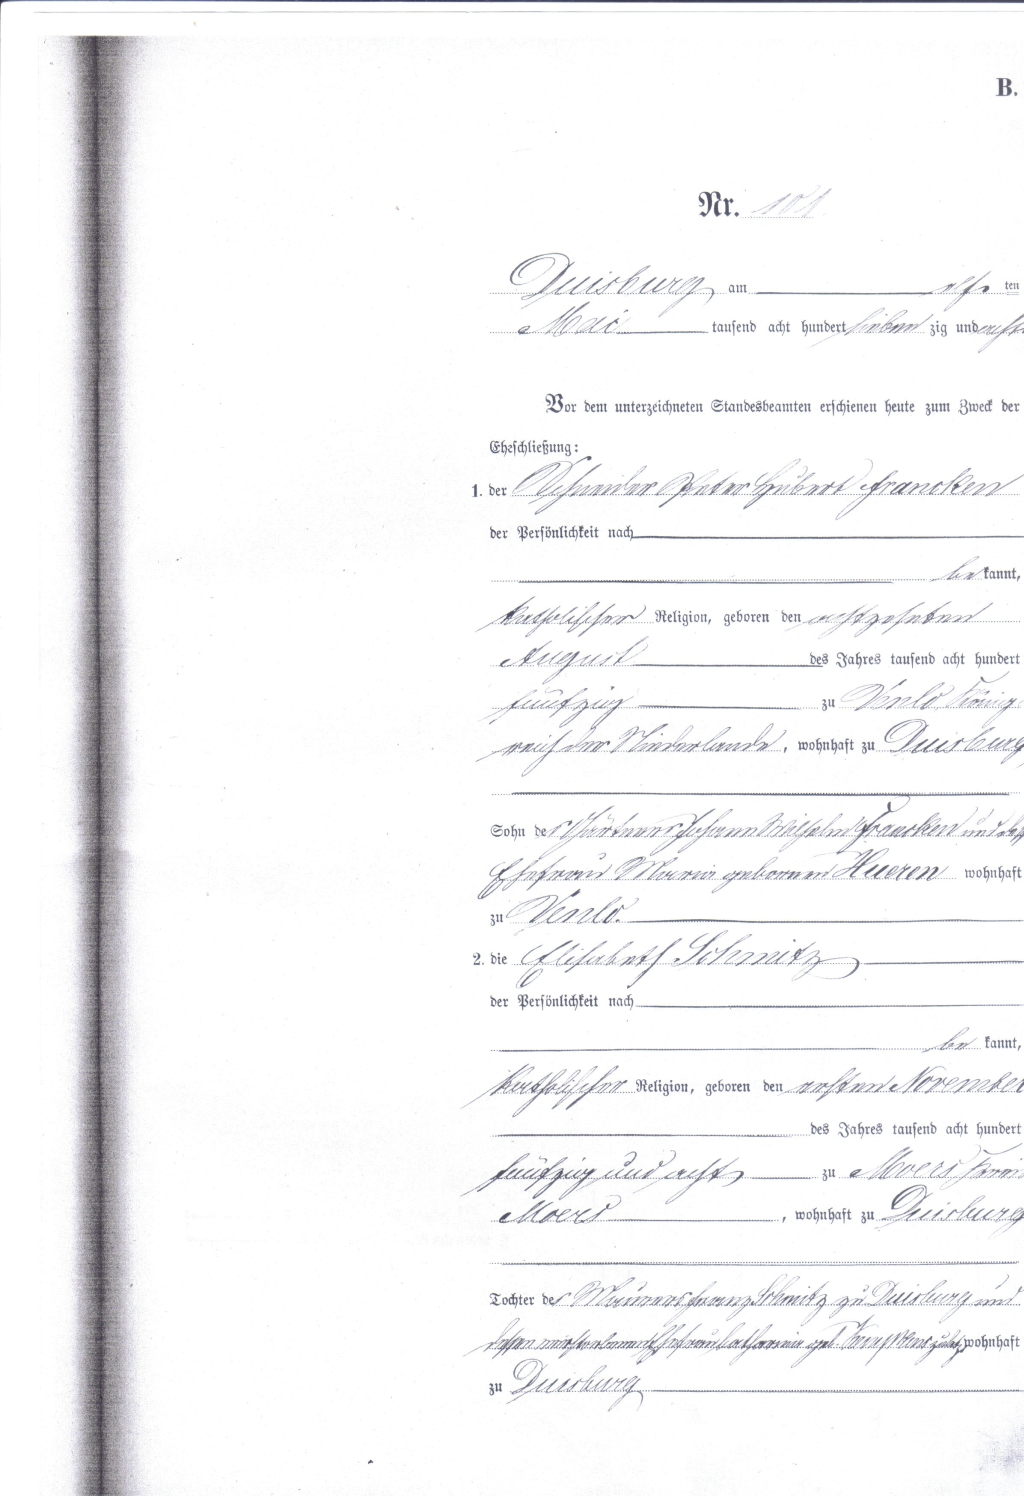 B.
Nr. 101
Duisburg, am elf ten
Mai tausend acht hundert sieben zig und acht
Vor dem unterzeichneten Standesbeamten erschienen heute zum Zweck der
Eheschließung:
1. der Schneider Peter Hubert Francken
der Persönlichkeit nach
be kannt,
katholischer Religion, geboren den achtzehnten
August des Jahres tausend acht hundert
fünfzig zu Venlo König
reich der Niederlande, wohnhaft zu Duisburg
Sohn des Gärtners Johann Wilhelm Francken und dess
Ehefrau Maria geborenen Hueren wohnhaft
zu Venlo.
2. die Elisabeth Schmitz
der Persönlichkeit nach
be kannt,
katholischer Religion, geboren den ersten November
des Jahres tausend acht hundert
fünfzig und acht zu Moers Kreis
Moers, wohnhaft zu Duisburg
Tochter des Maurers Franz Schmitz zu Duisburg und
dessen verstorbenen Ehefrau Catharina geb. zuletzt wohnhaft
zu Duisburg